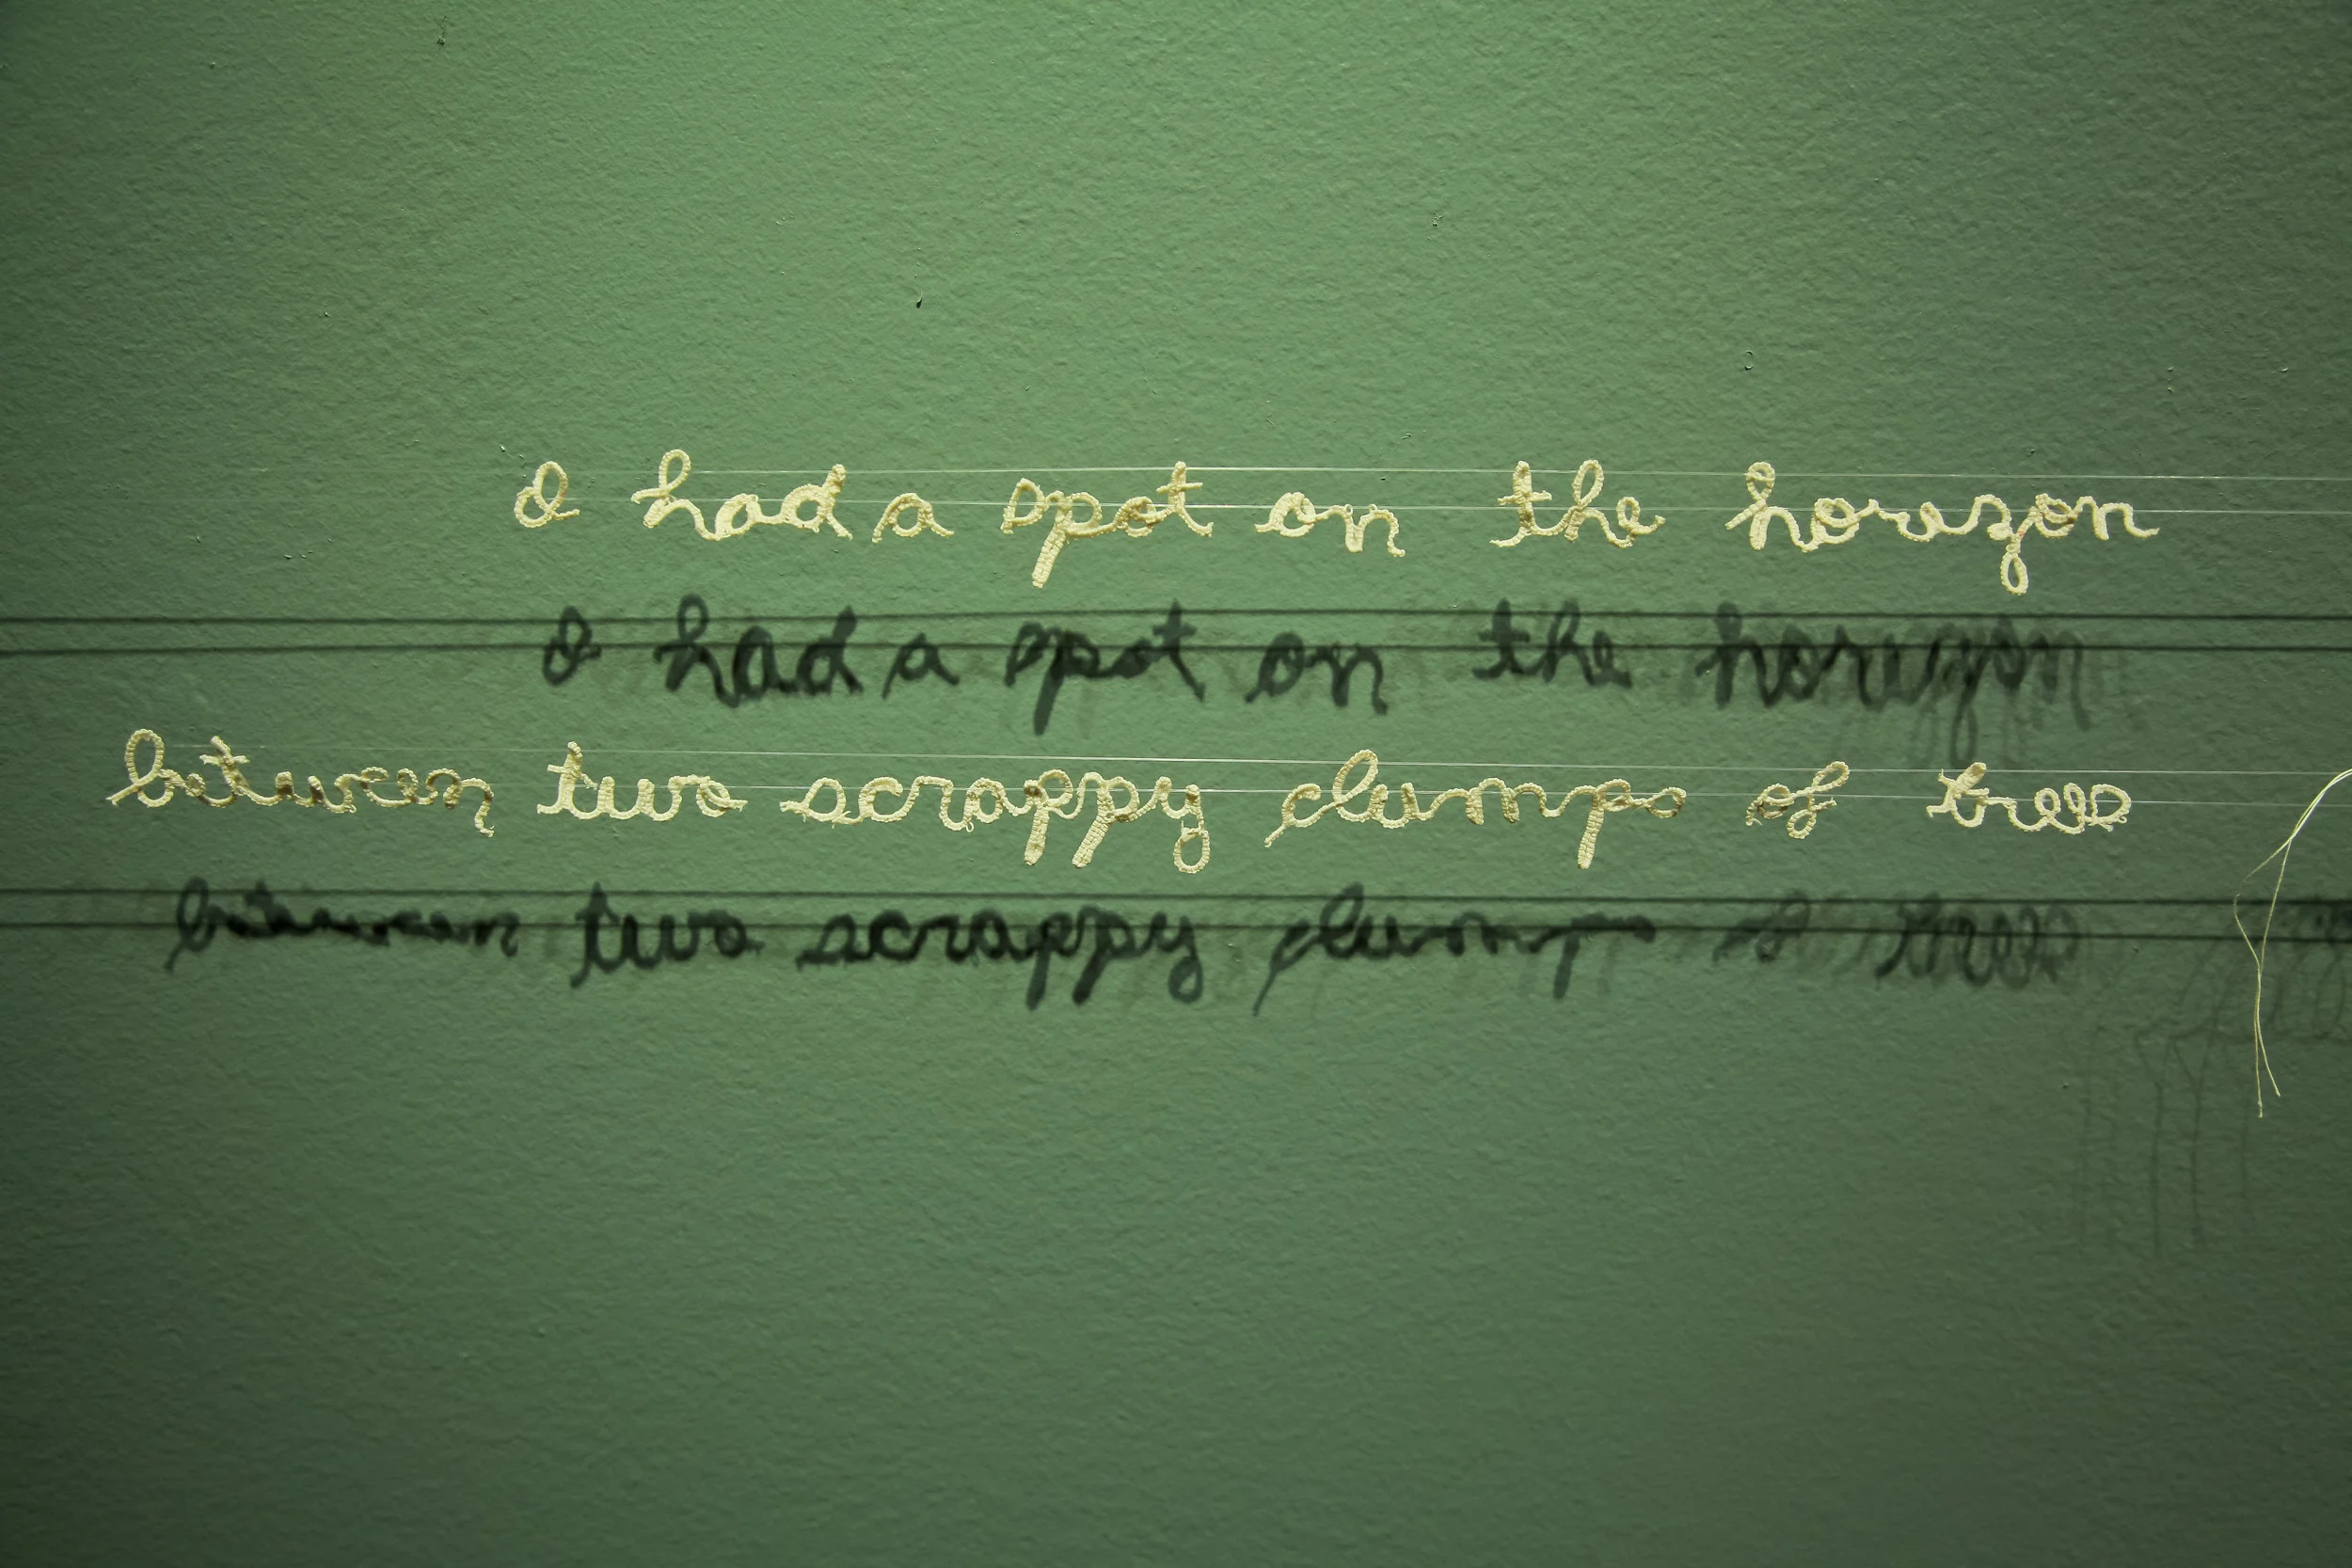 I had a spot on the horizon
between two scrappy clumps of trees